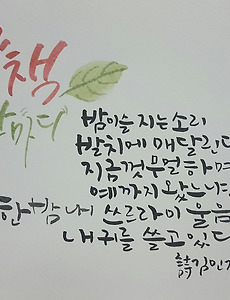 책
한마디
밤이슬 지는 소리
발치에 매달린다
지금껏 무얼 하며
예까지 왔느냐
한밤 내 쓰르라미 울음
내 귀를 쓸고 있다
詩 김민